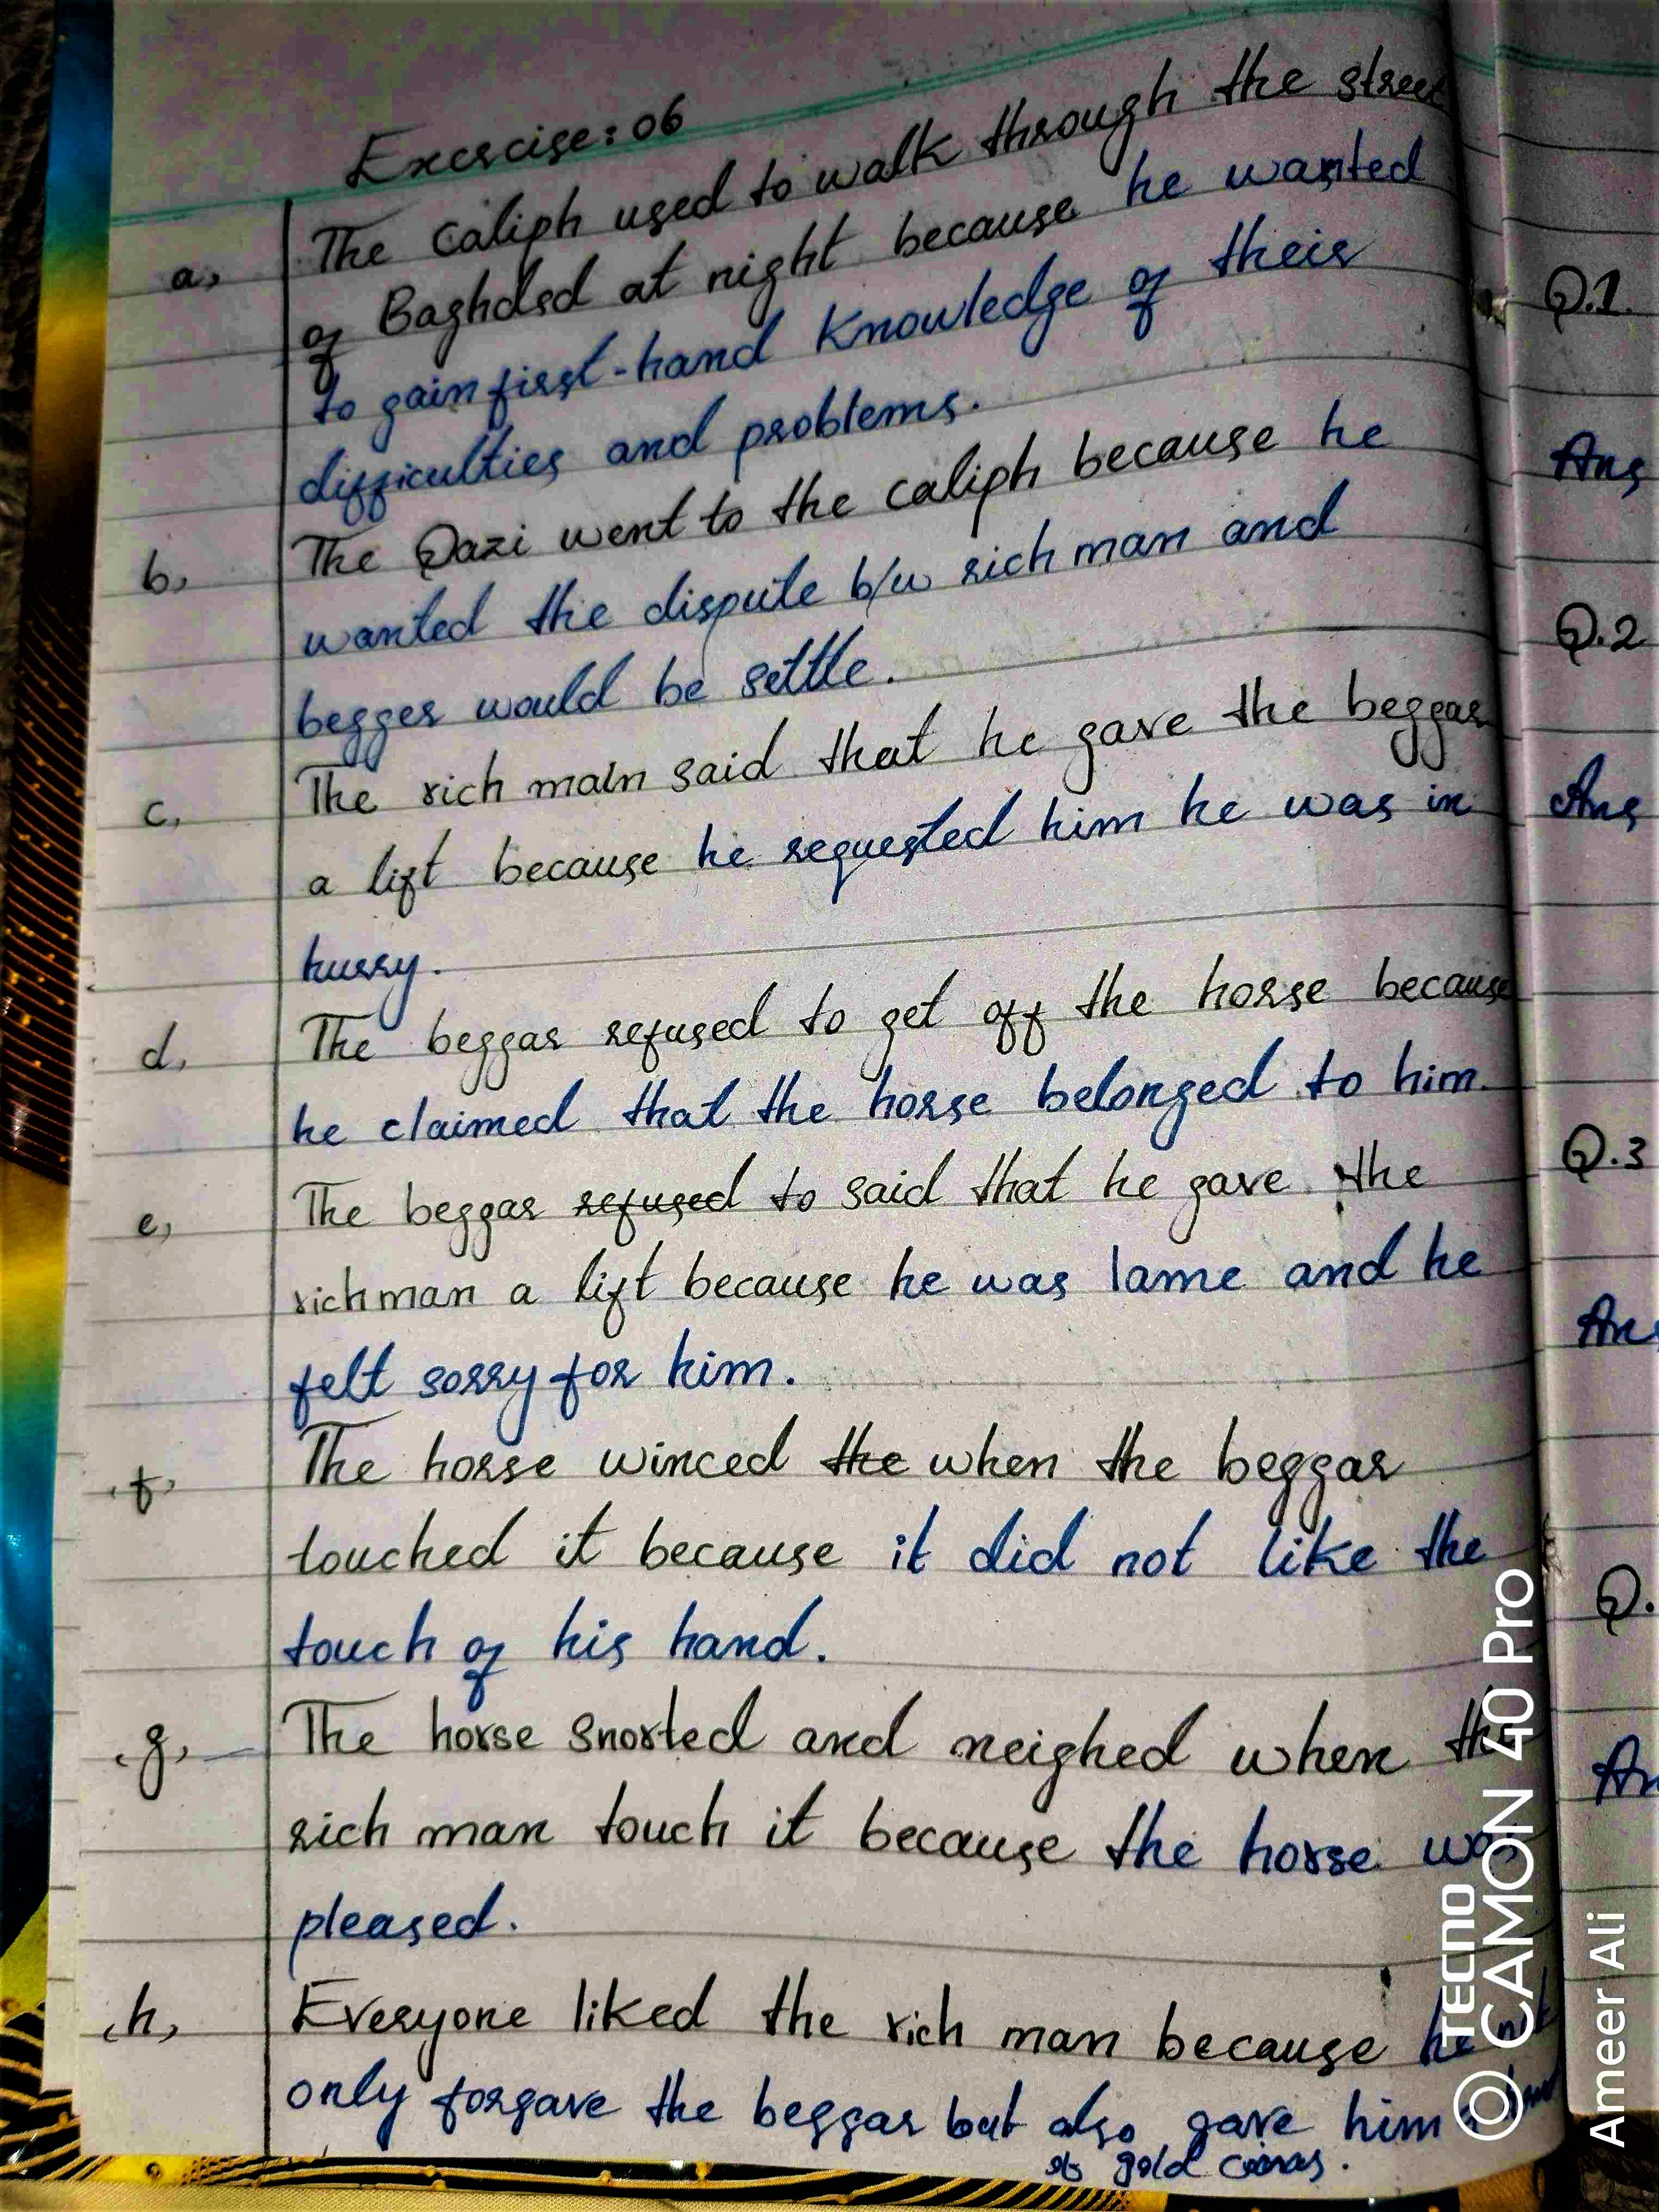 Exercise: 06
a, The caliph used to walk through the street
of Baghdad at night because he wanted
to gain first-hand knowledge of their
difficulties and problems.
b, The Qazi went to the caliph because he
wanted the dispute b/w rich man and
begger would be settle.
c, The rich man said that he gave the beggar
a lift because he requested him he was in
hurry.
d, The beggar refused to get off the horse because
he claimed that the horse belonged to him.
e, The beggar refused to said that he gave the
richman a lift because he was lame and he
felt sorry for him.
f, The horse winced the when the beggar
touched it because it did not like the
touch of his hand.
g, The horse snorted and neighed when the
rich man touch it because the horse was
pleased.
h, Everyone liked the rich man because he not
only forgave the beggar but also gave him
gold coines.
Q.1.
Ans
Q.2
Ans
Q.3
Ans
Q.
An
TECNO
CAMON 40 Pro
Ameer Ali